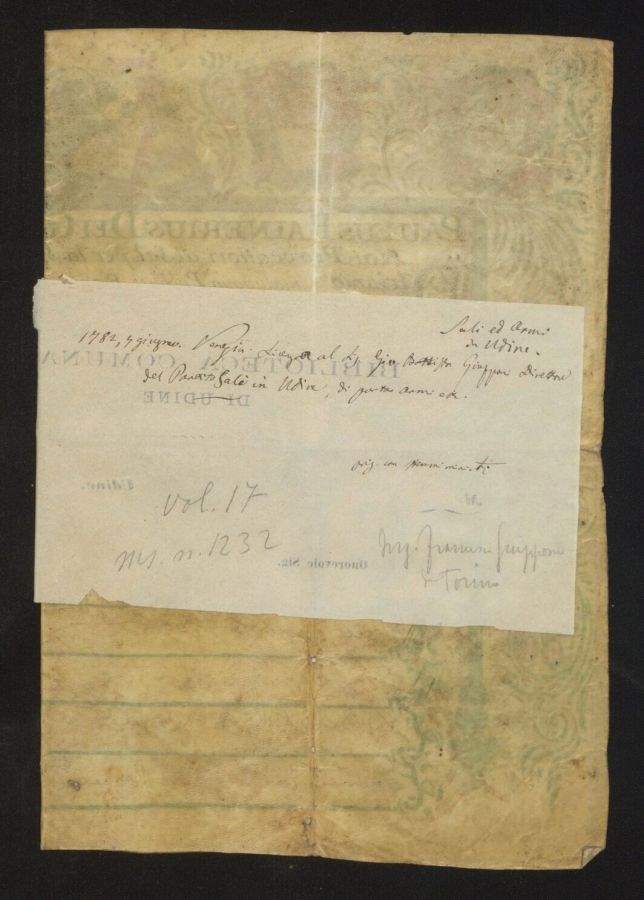 PAULUS RAINERIUS DEI G
Sali ed Armi
in Udine.
1782, 7 giugno. Venezia. Licenza al Sig. Gio. Battista Giupponi Direttore
del Partito Sali in Udine, di portar armi ecc.
BIBLIOTECA COMUNA
DI UDINE
orig. con
Udine.
vol. 17
N
ms. n. 1232
Ing. Francesco Giupponi
Onorevole Sig.
di Torino